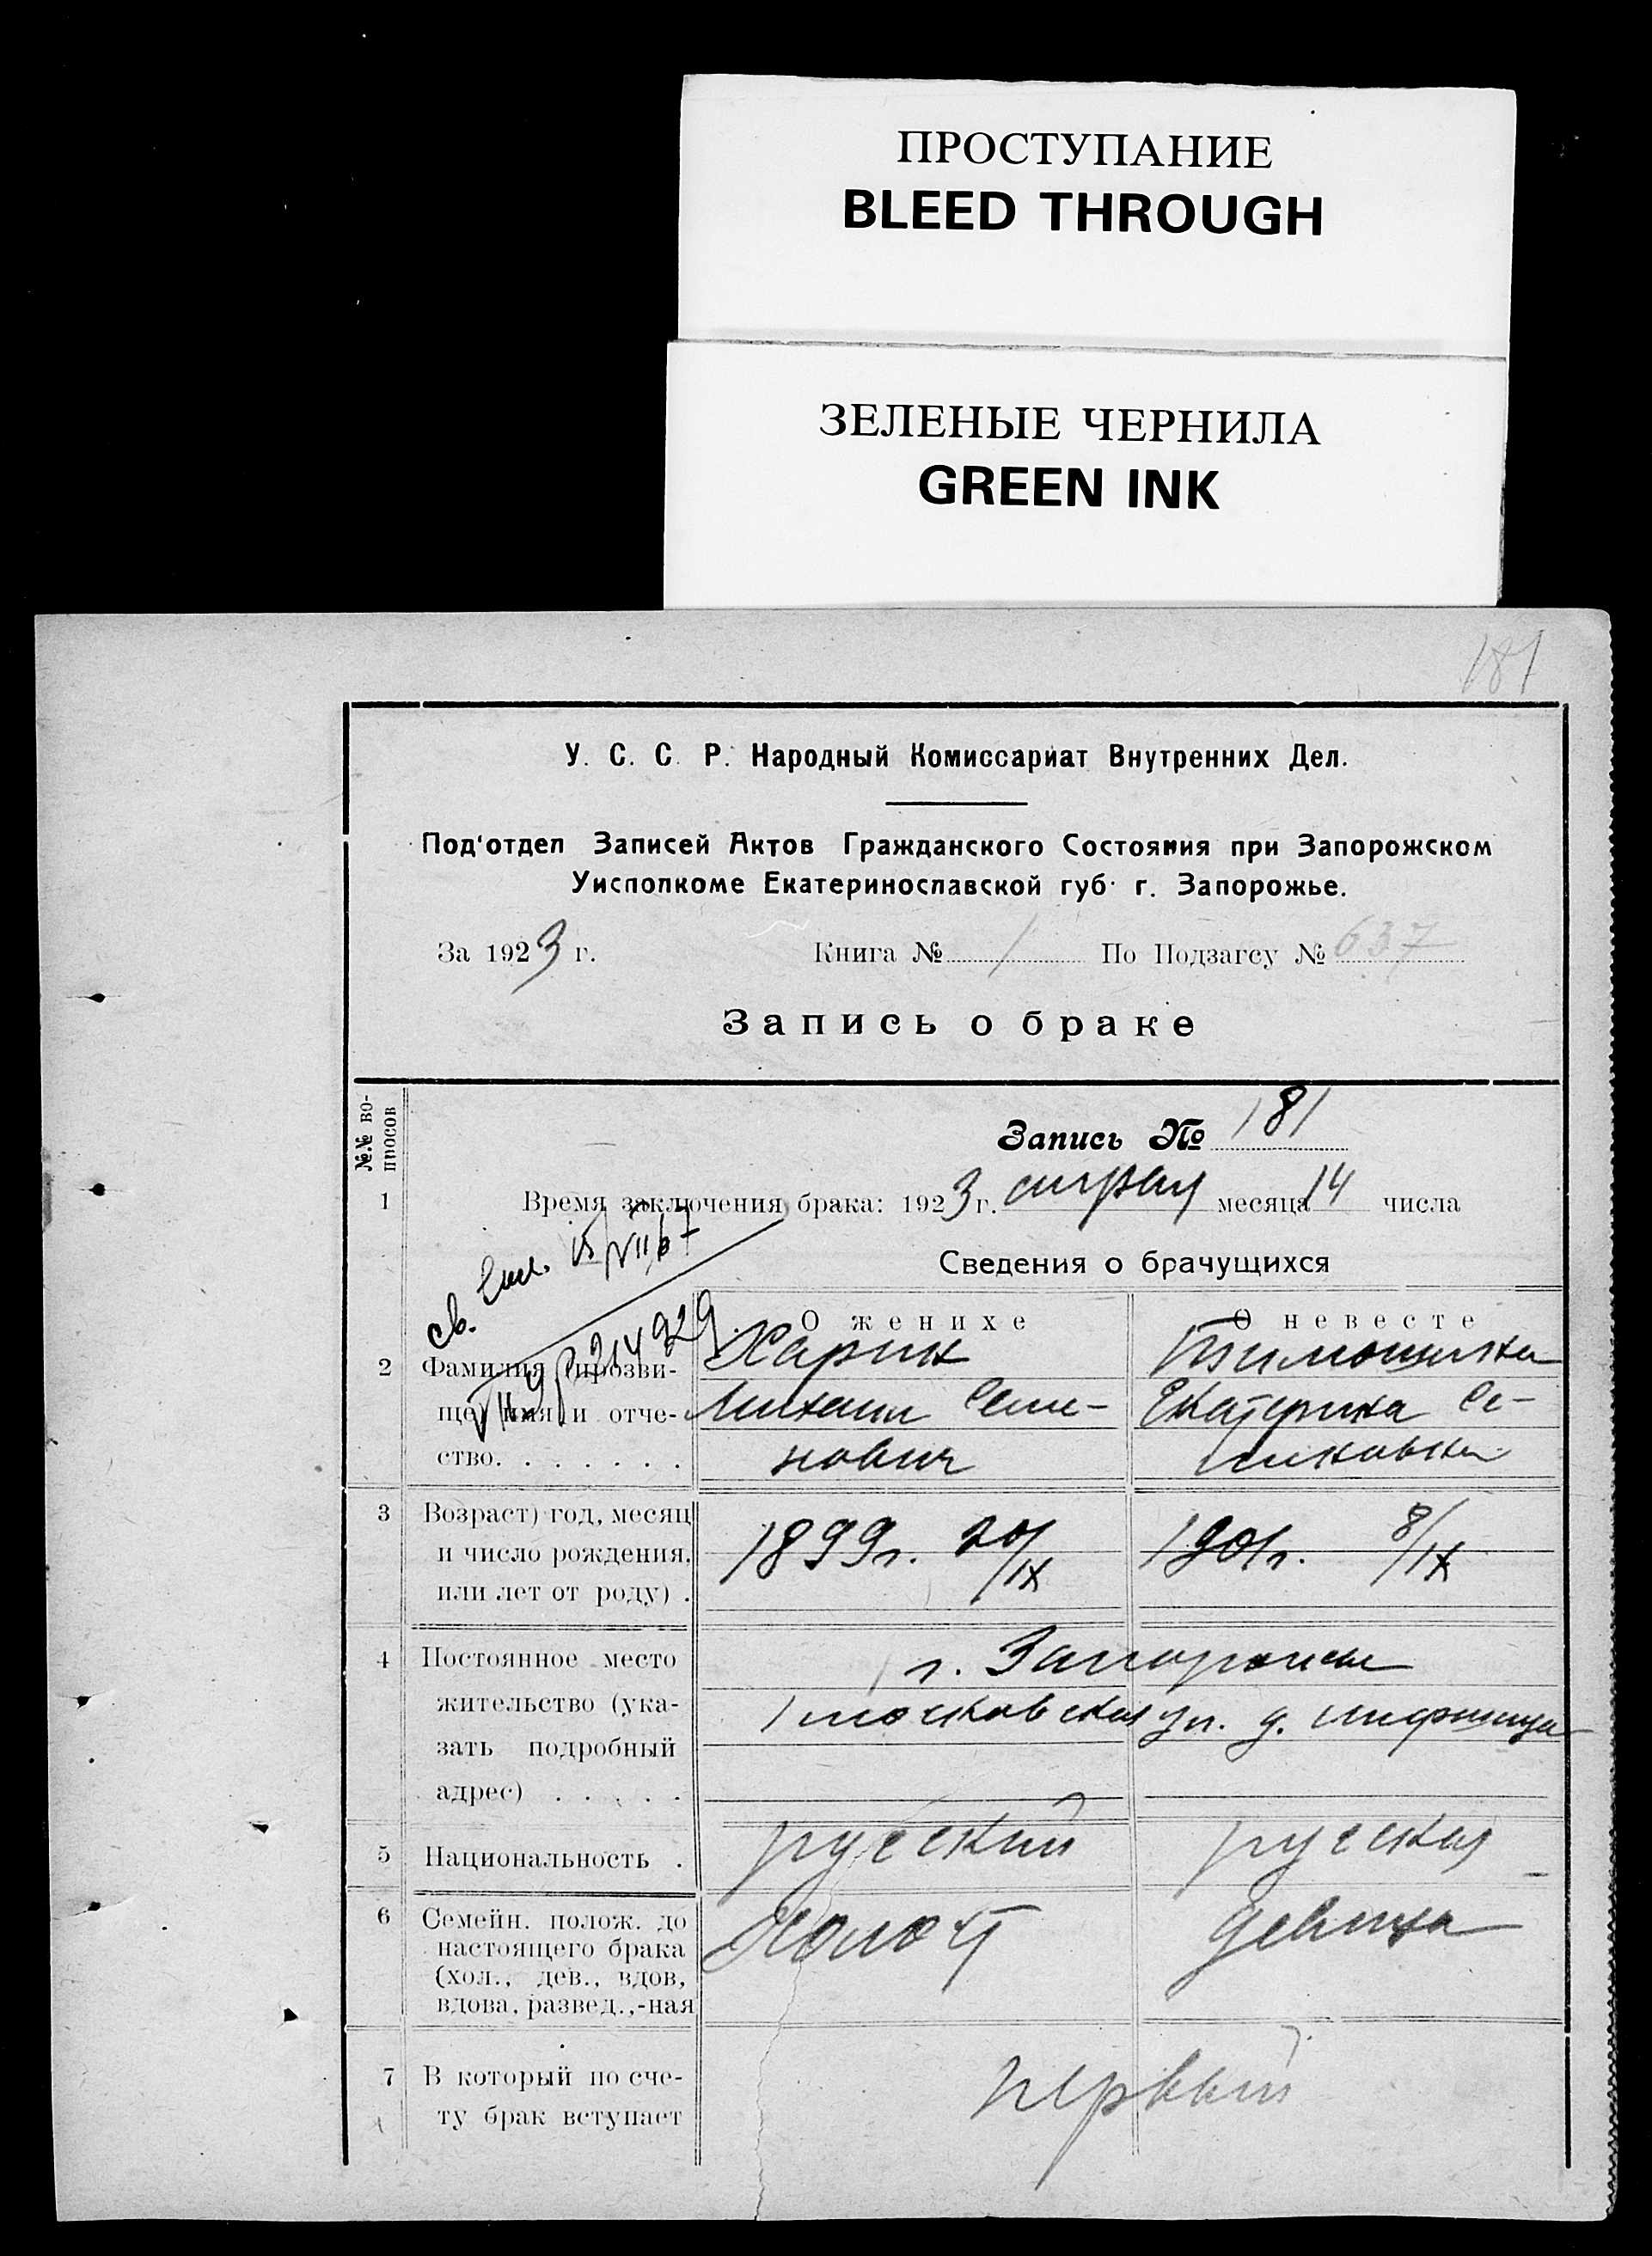 ПРОСТУПАНИЕ
BLEED THROUGH
ЗЕЛЕНЫЕ ЧЕРНИЛА
GREEN INK
181
У. С. С. Р. Народный Комиссариат Внутренних Дел.
Под'отдел Записей Актов Гражданского Состояния при Запорожском
Уисполкоме Екатеринославской губ. г. Запорожье.
За 1923 г. Книга № 1 По Подзагсу № 637
Запись о браке
№.№ во-
просов
Запись № 181
1 Время заключения брака: 1923 г. месяца 14 числа
Сведения о брачущихся
О женихе О невесте
2 Фамилия (прозви- Харин
ще) имя и отче- Михаил Семе- Екатерина Се-
ство. . . . . . . нович
3 Возраст) год, месяц
и число рождения, 1899г. 20/IX 1901г. 8/IX
или лет от роду) .
4 Постоянное место г. Запорожье
жительство (ука- Московская ул. д.
зать подробный
адрес) . . . . .
5 Национальность . русский русская
6 Семейн. полож. до Холост девица
настоящего брака
(хол., дев., вдов,
вдова, развед.,-ная
7 В который по сче- первый
ту брак вступает